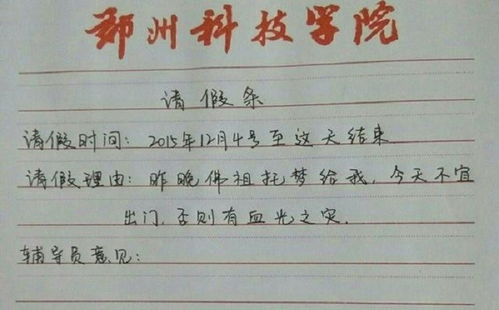 郑州科技学院
请假条
请假时间：2015年12月4号至这天结束
请假理由：昨晚佛祖托梦给我，今天不宜
出门，否则有血光之灾．
辅导员意见：